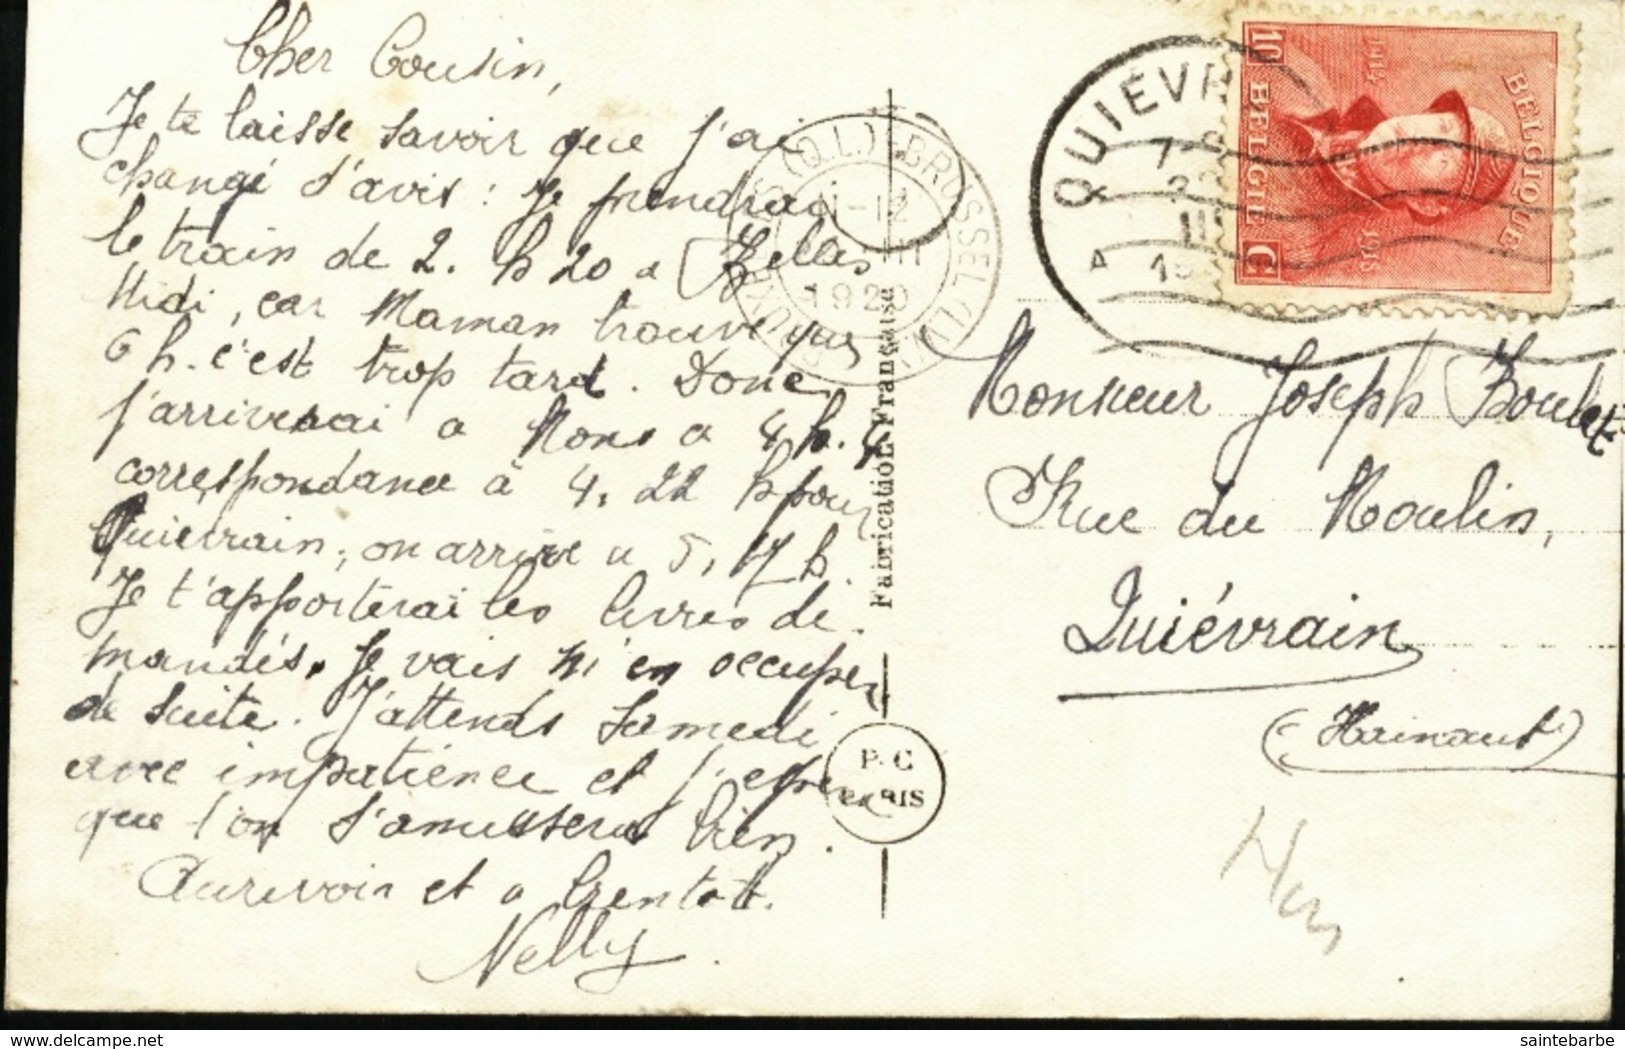 Cher Cousin,
Je te laisse savoir que j'ai
changé d'avis : Je prendrai
le train de 2. h 20 a Bxelles
Midi, car Maman trouve que
6 h. c'est trop tard. Donc
j'arriverai a Mons a 4 h. 4
correspondance à 4, 22 h pour
Quiévrain, on arrive a 5, 17 h.
Je t'apporterai les livres de-
mandés. Je vais m'en occuper
de suite. J'attends Samedi
avec impatience et j'espère
que l'on s'amusera bien.
Aurevoir et a bientôt.
Nelly.
Fabrication Française
P.C
PARIS
(Q.L.) BRUSSEL
11-12
III
1920
QUIÉVR
A
III
BELGIQUE
1914
1918
10 BELGIË C
Monsieur Joseph Boulet
Rue du Moulin,
Quiévrain
(Hainaut)
delcampe.net
saintebarbe